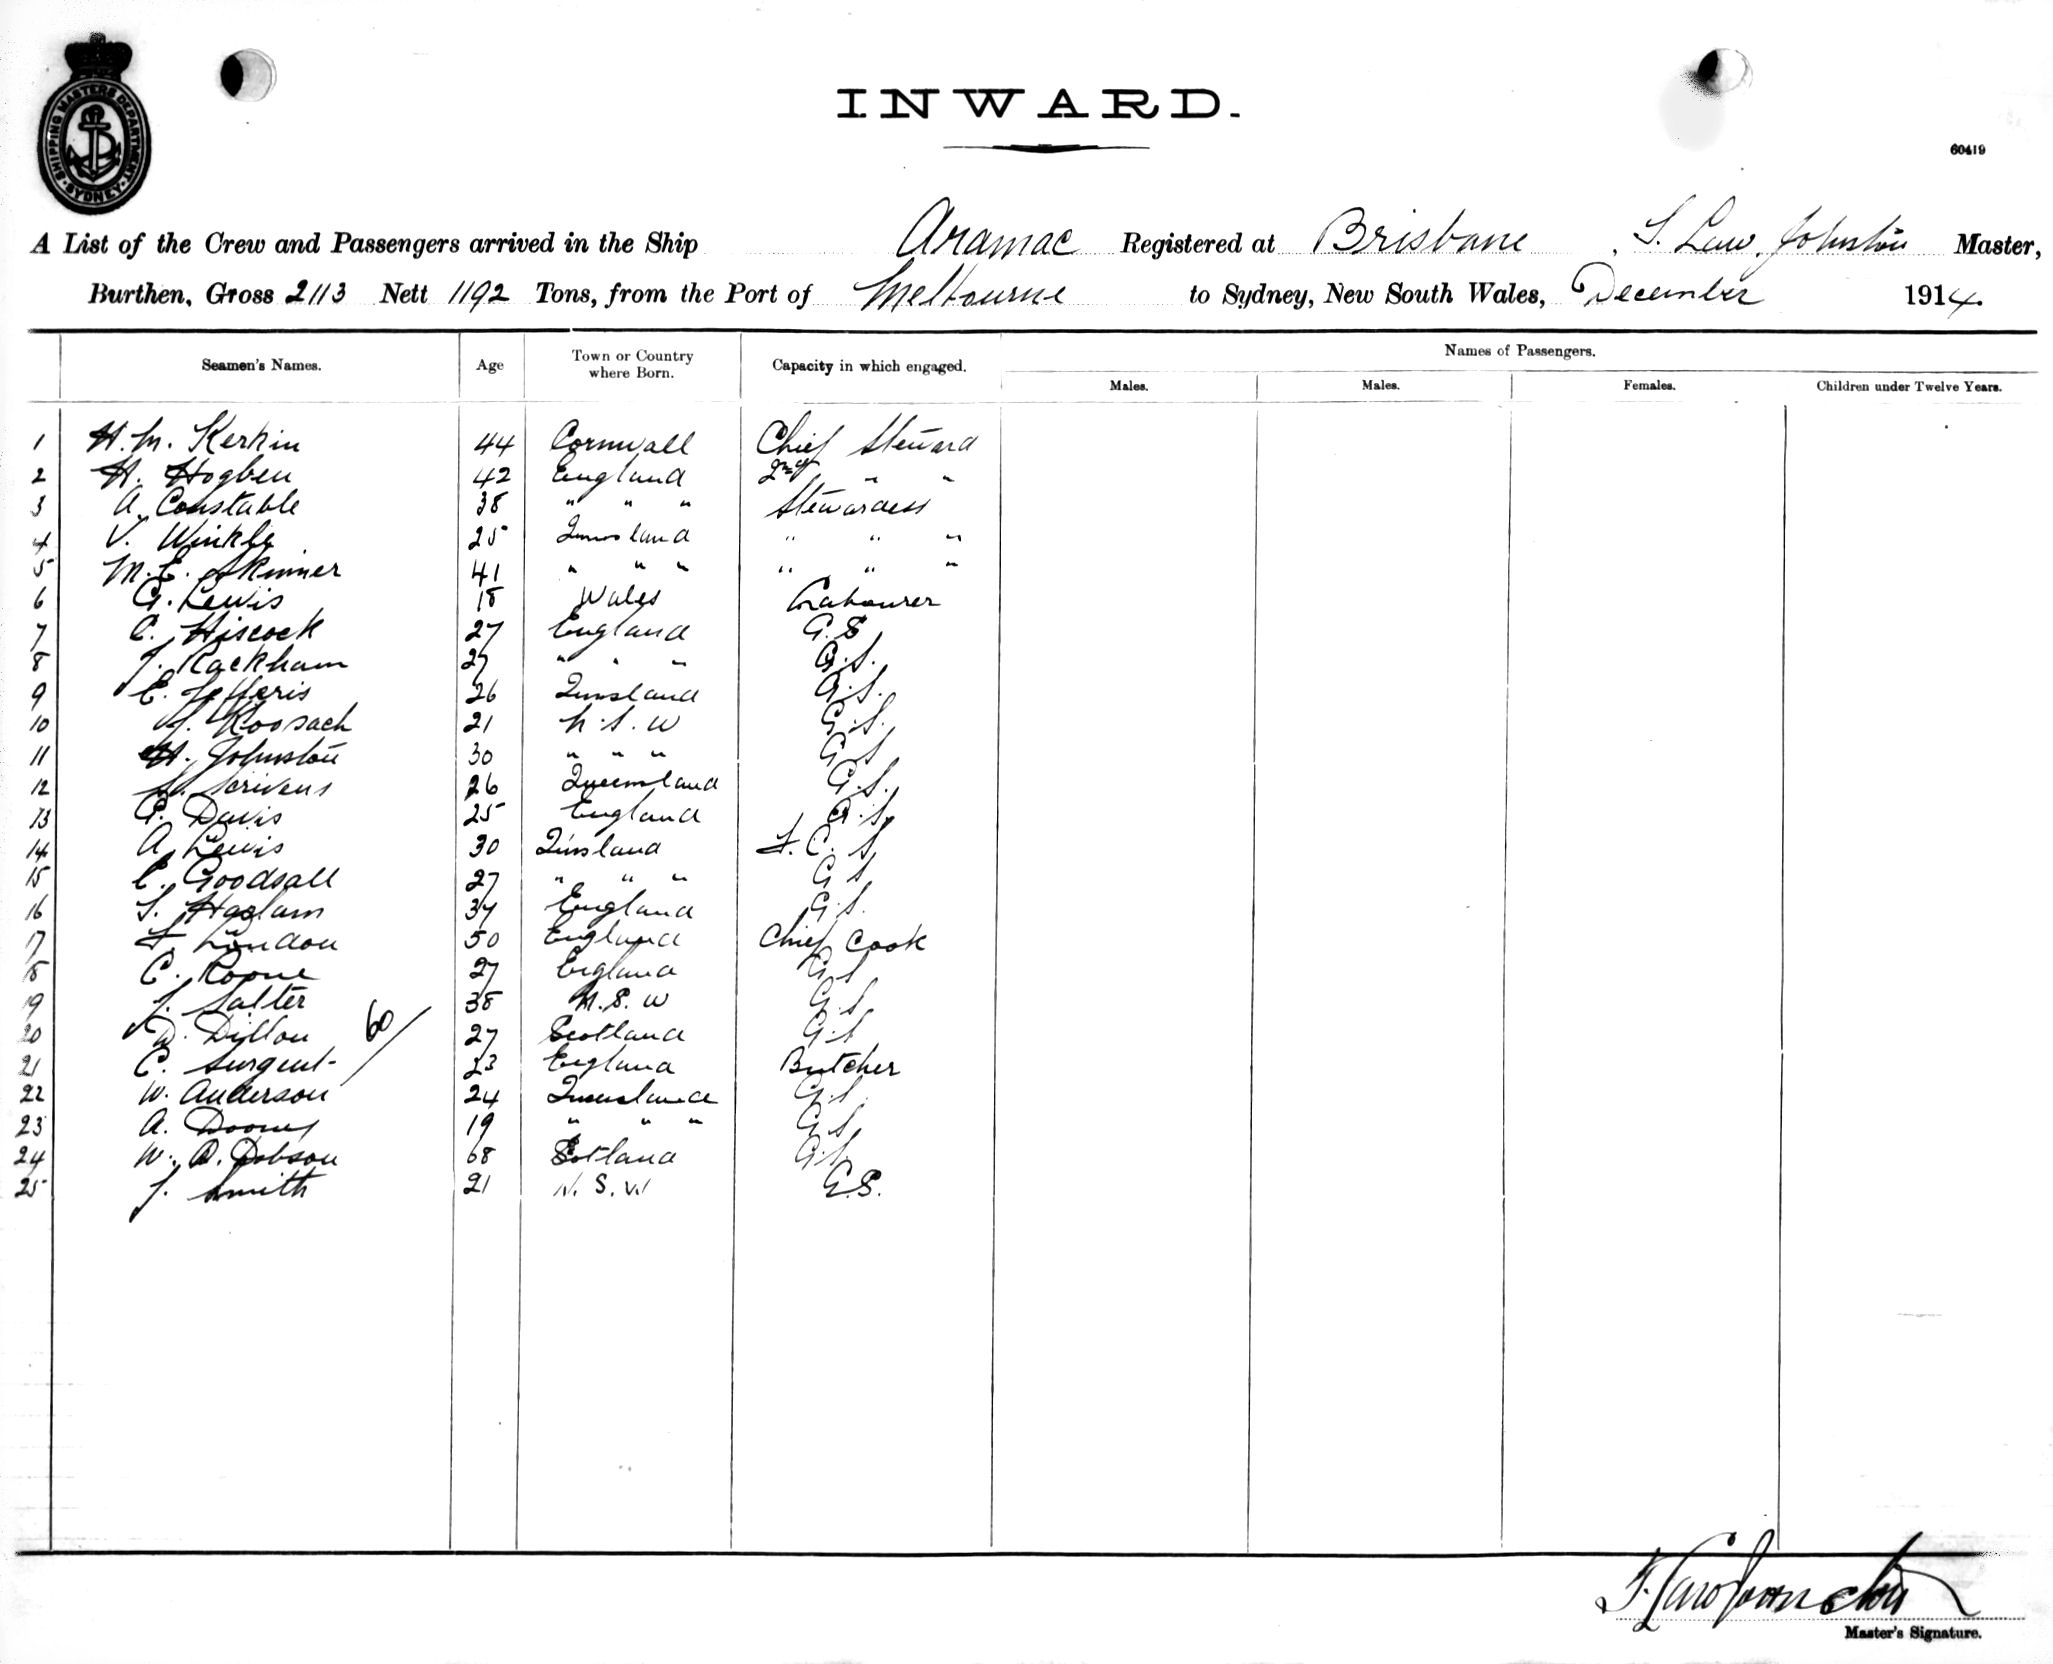 SHIPPING MASTERS DEPARTMENT SYDNEY
INWARD.
60419
A List of the Crew and Passengers arrived in the Ship Aramac Registered at Brisbane, Law Johnston Master,
Burthen, Gross 2113 Nett 1192 Tons, from the Port of Melbourne to Sydney, New South Wales, December 1914
Seamen's Names. Age Town or Country where Born. Capacity in which engaged. Names of Passengers.
Males. Males. Females. Children under Twelve Years.
1 H. M. Kerkin 44 Cornwall Chief Steward
2 H. Hogben 42 England 2nd " "
3 A. Constable 38 " " " Stewardess
4 V. Winkle 25 Qunsland " " "
5 M. E. Skinner 41 " " " " " "
6 G. Lewis 18 Wales Labourer
7 C. Hiscock 27 England G. S.
8 J. Rackham 27 " " " G. S.
9 E. Jefferis 26 Qunsland G. S.
10 J. Koosach 21 N. S. W G. S.
11 H. Johnston 30 " " " G S
12 S. Scrivens 26 Queensland G. S.
13 G. Davis 25 England G. S.
14 A. Lewis 30 Qunsland F. C. S
15 C. Goodsall 27 " " " G S
16 S. Haslam 37 England G. S.
17 F. London 50 England Chief Cook
18 C. Roone 27 England G S
19 J. Salter 38 N. S. W G. S
20 D. Dillon 27 Scotland G. S
60/
21 C. Surgent 23 England Butcher
22 W. Anderson 24 Queensland G. S
23 A. 19 " " " G S
24 W. D. Dobson 68 Scotland G. S.
25 J. Smith 21 N. S. W G. S.
F. Law Johnston
Master's Signature.